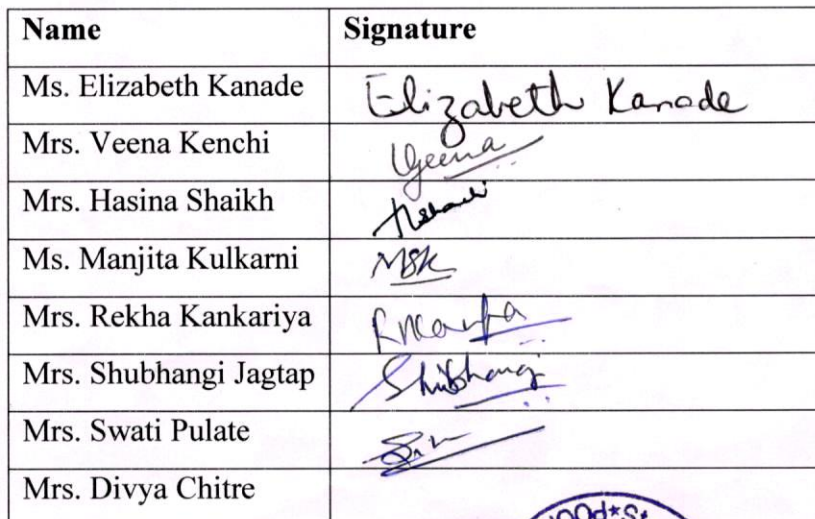 Name Signature
Ms. Elizabeth Kanade Elizabeth Kanade
Mrs. Veena Kenchi Veena
Mrs. Hasina Shaikh
Ms. Manjita Kulkarni MSK
Mrs. Rekha Kankariya
Mrs. Shubhangi Jagtap Shubhangi
Mrs. Swati Pulate
Mrs. Divya Chitre